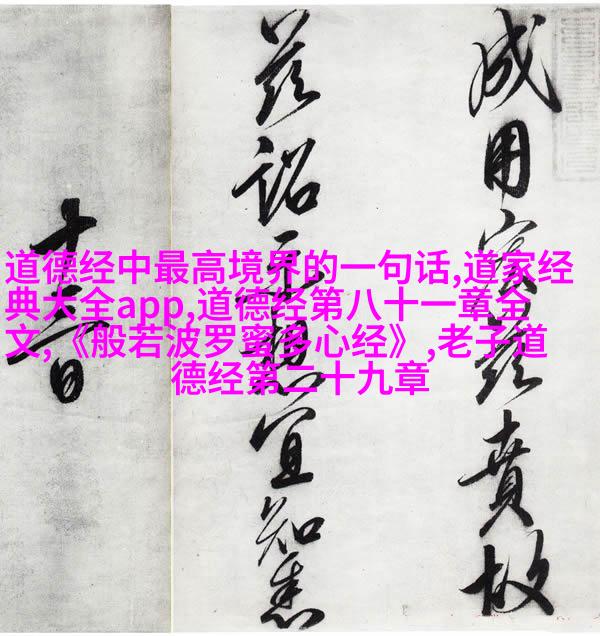 道德经中最高境界的一句话,道家经
典大全app,道德经第八十一章全
文,《般若波罗蜜多心经》,老子道
德经第二十九章
成用茲賁故
茲詔示想宜知悉
十日